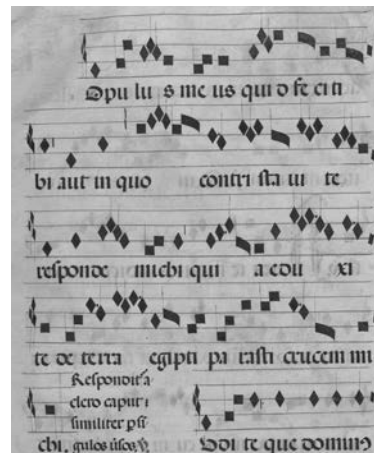 Opu lu s me us qui d fe ci ti
bi aut in quo contri sta ui te
responde michi qui a edu xi
te de terra egipti pa rasti crucem mi
chi.
Respondit a
clero caput i
similiter psi
gulos
Doi te que domin